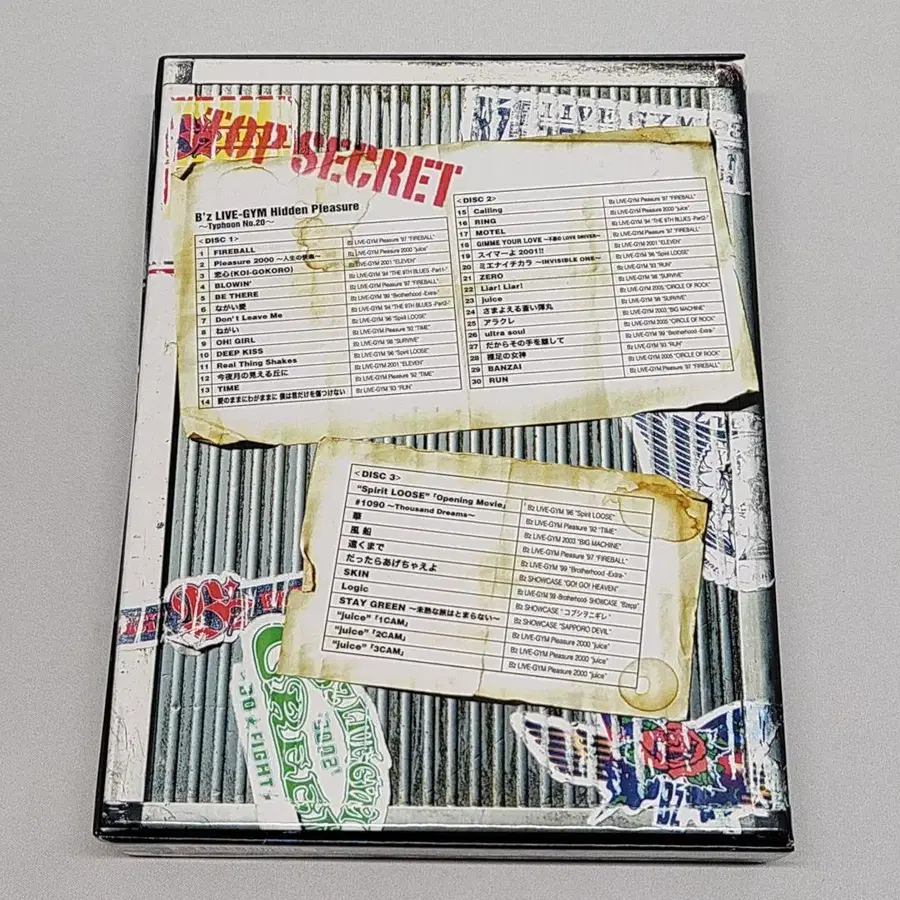 TOP SECRET
LIVE-GYM
B'z LIVE-GYM Hidden Pleasure
～Typhoon No.20～
<DISC 1>
1 FIREBALL B'z LIVE-GYM Pleasure '97 "FIREBALL"
2 Pleasure 2000 ～人生の快楽～ B'z LIVE-GYM Pleasure 2000 "juice"
3 恋心(KOI-GOKORO) B'z LIVE-GYM 2001 "ELEVEN"
4 BLOWIN' B'z LIVE-GYM '94 "THE 9TH BLUES -Part1-"
5 BE THERE B'z LIVE-GYM Pleasure '97 "FIREBALL"
6 ながい愛 B'z LIVE-GYM '99 "Brotherhood -Extra-"
7 Don't Leave Me B'z LIVE-GYM '94 "THE 9TH BLUES -Part2-"
8 ねがい B'z LIVE-GYM '96 "Spirit LOOSE"
9 OH! GIRL B'z LIVE-GYM Pleasure '92 "TIME"
10 DEEP KISS B'z LIVE-GYM '98 "SURVIVE"
11 Real Thing Shakes B'z LIVE-GYM '96 "Spirit LOOSE"
12 今夜月の見える丘に B'z LIVE-GYM 2001 "ELEVEN"
13 TIME B'z LIVE-GYM Pleasure '92 "TIME"
14 愛のままにわがままに 僕は君だけを傷つけない B'z LIVE-GYM '93 "RUN"
<DISC 2>
15 Calling B'z LIVE-GYM Pleasure '97 "FIREBALL"
16 RING B'z LIVE-GYM Pleasure 2000 "juice"
17 MOTEL B'z LIVE-GYM '94 "THE 9TH BLUES -Part2-"
18 GIMME YOUR LOVE ～不屈のLOVE DRIVER～ B'z LIVE-GYM Pleasure '97 "FIREBALL"
19 スイマーよ2001!! B'z LIVE-GYM 2001 "ELEVEN"
20 ミエナイチカラ ～INVISIBLE ONE～ B'z LIVE-GYM '96 "Spirit LOOSE"
21 ZERO B'z LIVE-GYM '93 "RUN"
22 Liar! Liar! B'z LIVE-GYM '98 "SURVIVE"
23 juice B'z LIVE-GYM 2005 "CIRCLE OF ROCK"
24 さまよえる蒼い弾丸 B'z LIVE-GYM '98 "SURVIVE"
25 アラクレ B'z LIVE-GYM 2003 "BIG MACHINE"
26 ultra soul B'z LIVE-GYM 2005 "CIRCLE OF ROCK"
27 だからその手を離して B'z LIVE-GYM '99 "Brotherhood -Extra-"
28 裸足の女神 B'z LIVE-GYM '93 "RUN"
29 BANZAI B'z LIVE-GYM 2005 "CIRCLE OF ROCK"
30 RUN B'z LIVE-GYM Pleasure '97 "FIREBALL"
<DISC 3>
"Spirit LOOSE"「Opening Movie」 B'z LIVE-GYM '96 "Spirit LOOSE"
#1090 ～Thousand Dreams～ B'z LIVE-GYM Pleasure '92 "TIME"
華 B'z LIVE-GYM 2003 "BIG MACHINE"
風船 B'z LIVE-GYM Pleasure '97 "FIREBALL"
遠くまで B'z LIVE-GYM '99 "Brotherhood -Extra-"
だったらあげちゃえよ B'z SHOWCASE "GO! GO! HEAVEN"
SKIN B'z LIVE-GYM '99 -Brotherhood- SHOWCASE "B'zepp"
Logic B'z SHOWCASE "コブシヲニギレ"
STAY GREEN ～未熟な旅はとまらない～ B'z SHOWCASE "SAPPORO DEVIL"
"juice"「1CAM」 B'z LIVE-GYM Pleasure 2000 "juice"
"juice"「2CAM」 B'z LIVE-GYM Pleasure 2000 "juice"
"juice"「3CAM」 B'z LIVE-GYM Pleasure 2000 "juice"
LIVE-GYM
2002
GREEN
GO★FIGHT
B'z